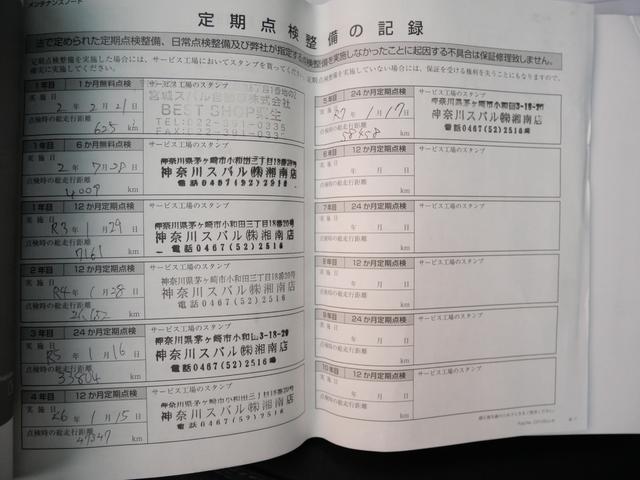 メンテナンスノート
定期点検整備の記録
法で定められた定期点検整備、日常点検整備及び弊社が指定する点検整備を実施しなかったことに起因する不具合は保証修理致しません。
定期点検を実施した場合には、サービス工場においてスタンプを買ってください。定期点検整備を実施していない場合には、保証を受ける権利を失うこともになりますので、
確実に実施してください。
1年目 1か月無料点検 サービス工場のスタンプ
実施日 2年2月21日
宮城スバル自動車株式会社
BEST SHOP
点検時の総走行距離
625 km
1年目 6か月無料点検 サービス工場のスタンプ
実施日 2年7月28日
神奈川県茅ヶ崎市小和田三丁目18番20号
神奈川スバル㈱湘南店
点検時の総走行距離
4009 km
電話0467(52)2516
1年目 12か月定期点検 サービス工場のスタンプ
実施日 R3年1月29日
神奈川県茅ヶ崎市小和田三丁目18番20号
神奈川スバル㈱湘南店
点検時の総走行距離
7161 km
電話0467(52)2516
2年目 12か月定期点検 サービス工場のスタンプ
実施日 R4年1月28日
神奈川県茅ヶ崎市小和田三丁目18番20号
神奈川スバル㈱湘南店
点検時の総走行距離
km
電話0467(52)2516
3年目 24か月定期点検 サービス工場のスタンプ
実施日 R5年1月16日
神奈川県茅ヶ崎市小和田3-18-20
神奈川スバル㈱湘南店
点検時の総走行距離
33804 km
電話0467(52)2516
4年目 12か月定期点検 サービス工場のスタンプ
実施日 R6年1月15日
神奈川県茅ヶ崎市小和田三丁目18番20号
神奈川スバル㈱湘南店
点検時の総走行距離
47347 km
電話0467(52)2516
5年目 24か月定期点検 サービス工場のスタンプ
実施日 R7年1月17日
神奈川県茅ヶ崎市小和田3-18-20
神奈川スバル㈱湘南店
点検時の総走行距離
58458 km
電話0467(52)2516
6年目 12か月定期点検 サービス工場のスタンプ
実施日 年 月 日
点検時の総走行距離
km
7年目 24か月定期点検 サービス工場のスタンプ
実施日 年 月 日
点検時の総走行距離
km
8年目 12か月定期点検 サービス工場のスタンプ
実施日 年 月 日
点検時の総走行距離
km
9年目 24か月定期点検 サービス工場のスタンプ
実施日 年 月 日
点検時の総走行距離
km
10年目 12か月定期点検 サービス工場のスタンプ
実施日 年 月 日
点検時の総走行距離
km